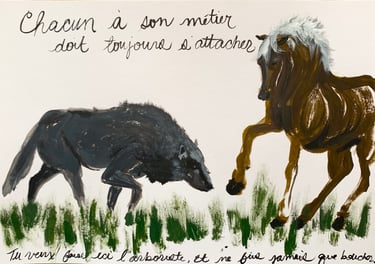 Chacun à son métier
doit toujours s'attacher
Tu veux faire ici l'arboriste, et ne fus jamais que boucher.